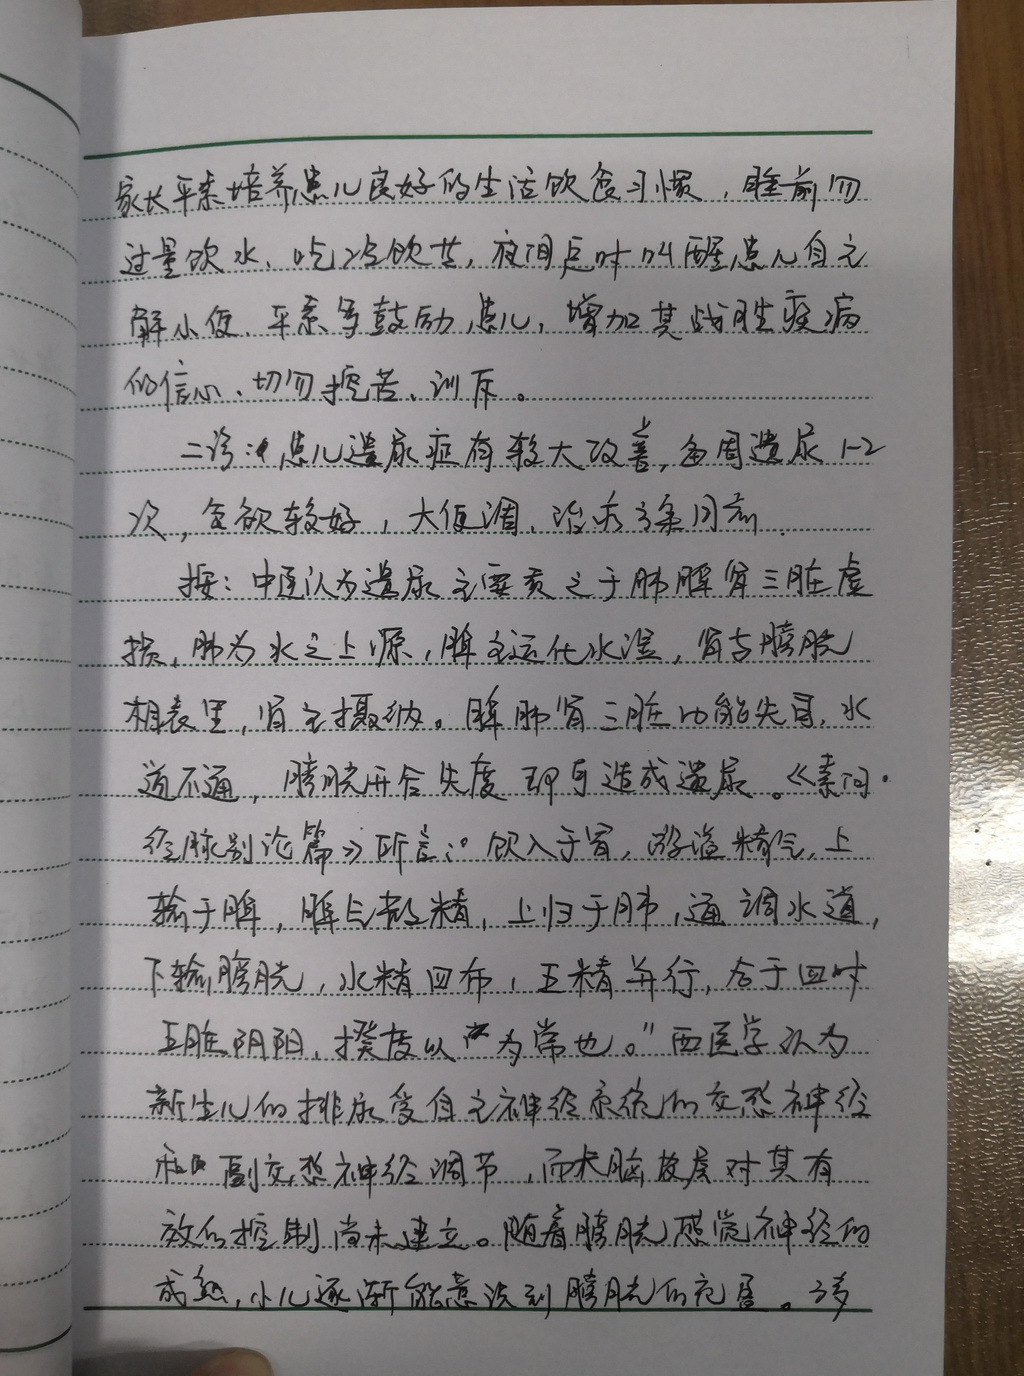 家长平素培养患儿良好的生活饮食习惯，睡前勿
过量饮水、吃冷饮等，夜间定时叫醒患儿自主
解小便、平素多鼓励患儿，增加其战胜疾病
的信心、切勿挖苦、训斥。
二诊：患儿遗尿症有较大改善，每周遗尿1-2
次，食欲较好，大便调、治疗方案同前
按：中医认为遗尿主要责之于肺脾肾三脏虚
损，肺为水之上源，脾主运化水湿，肾与膀胱
相表里，肾主摄纳。脾肺肾三脏功能失司，水
道不通，膀胱开合失度即可造成遗尿。《素问·
经脉别论篇》所言：“饮入于胃，游溢精气，上
输于脾，脾气散精，上归于肺，通调水道，
下输膀胱，水精四布，五精并行，合于四时
五脏阴阳，揆度以为常也。”西医学认为
新生儿的排尿受自主神经系统的交感神经
和副交感神经调节，而大脑皮层对其有
效的控制尚未建立。随着膀胱感觉神经的
成熟，小儿逐渐能意识到膀胱的充盈。3岁